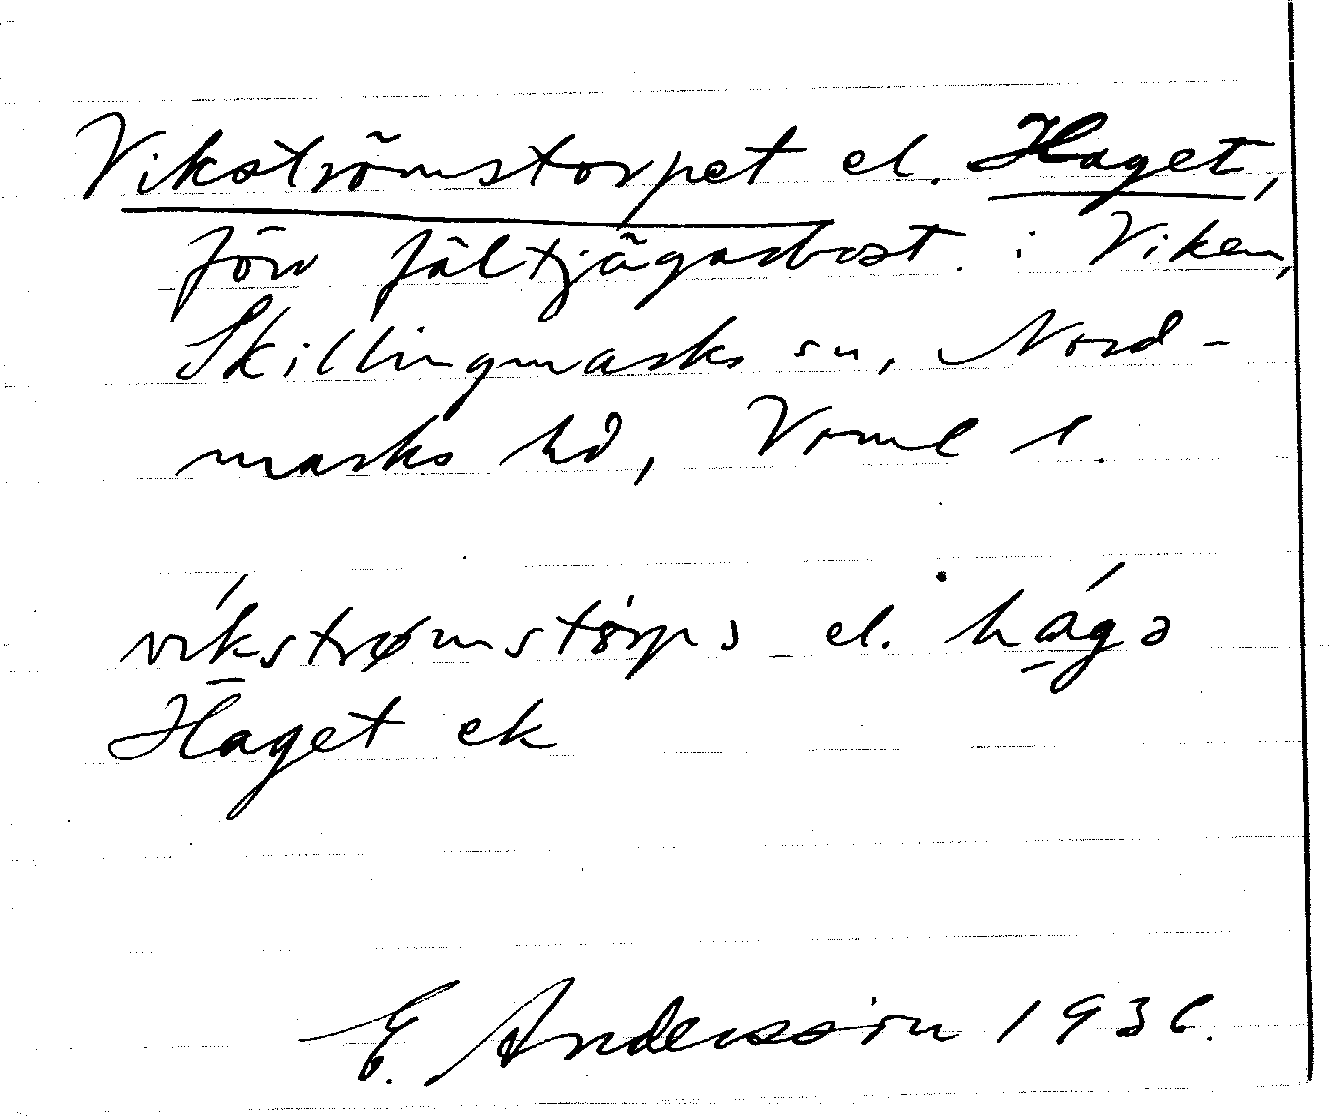 Vikströmstorpet el. Haget,
förv fältjägarbost. i Viken,
Skillingmarks sn, Nord-
marks hd, Vrml l.
víkstrømstórpə el. hágə
Haget ek
E. Andersson 1936.